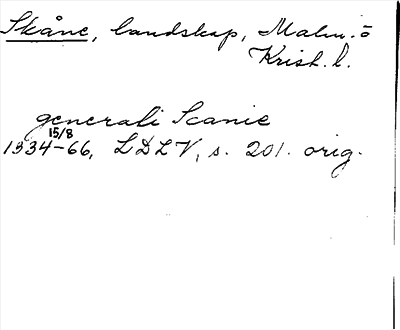 Skåne, landskap, Malm. ö
Krist. l.
generali Scanie
15/8
1334-66, LDLV, s. 201. orig.